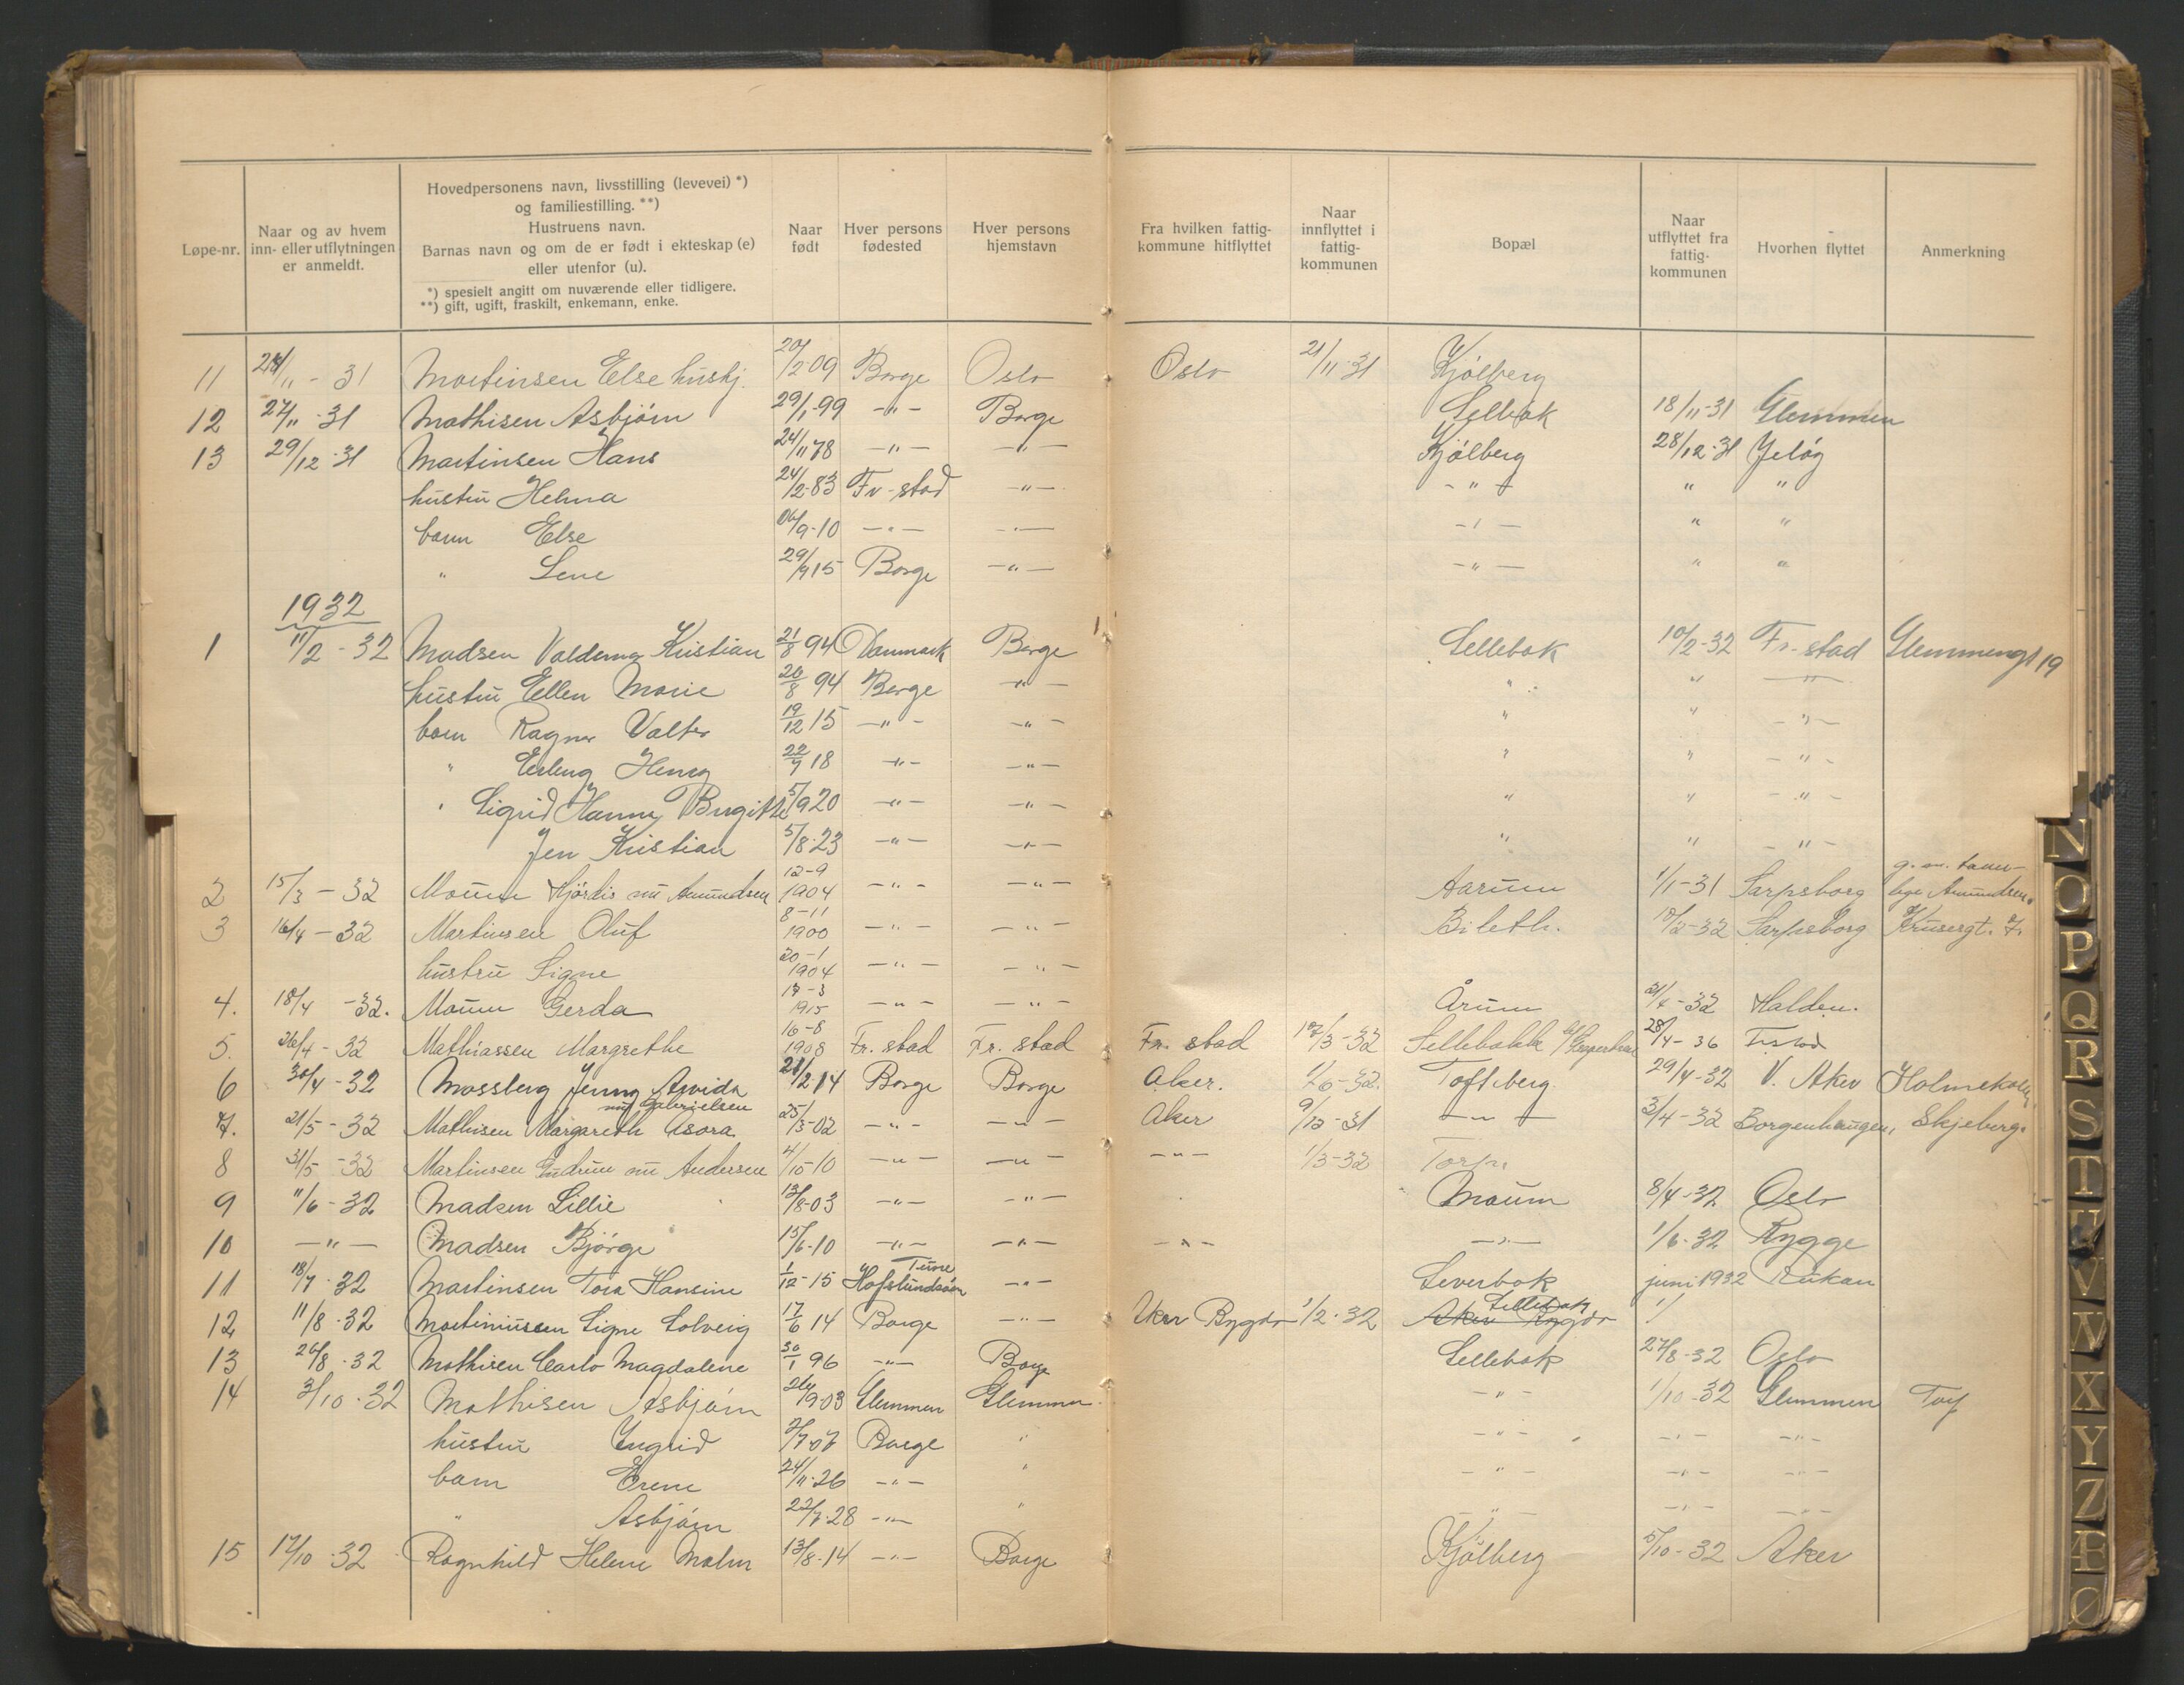 Løpe-nr. Naar og av hvem inn- eller utflytningen er anmeldt. Hovedpersonens navn, livsstilling (levevei) *) og familiestilling. **) Hustruens navn. Barnas navn og om de er født i ekteskap (e) eller utenfor (u). Naar født Hver persons fødested Hver persons hjemstavn Fra hvilken fattig-kommune hitflyttet Naar innflyttet i fattig-kommunen Bopæl Naar utflyttet fra fattig-kommunen Hvorhen flyttet Anmerkning
*) spesielt angitt om nuværende eller tidligere.
**) gift, ugift, fraskilt, enkemann, enke.
11 24/11 - 31 Martinsen Else hushj. 20/2 09 Borge Oslo Oslo 21/11 31 Kjölberg
12 27/11 - 31 Mathisen Asbjörn 29/1-99 -"- Borge Sellebak 18/11-31 Glemmen
13 29/12-31 Martinsen Hans 24/11 78 -"- -"- Kjölberg 28/12-31 Jelöy
hustru Helma 24/2-83 Fr-stad -"- -"- " "
barn Else /9-10 -"- -"- -"- " "
" Lene 29/9 15 Borge -"- -"- " "
1932
1 11/2 - 32 Madsen Valdemar Kristian 21/8 94 Danmark Borge Sellebak 10/2-32 Fr-stad Glemmengt 19
hustru Ellen Marie 20/8 94 Borge -"- " " -"-
barn Ragnar Valter 19/12 15 -"- -"- " " -"-
" Erling Henry 22/9 18 -"- -"- " " -"-
" Sigrid Hanny Birgitte 5/9 20 -"- -"- " " -"-
Jen Kristian 5/8-23 -"- -"- " " -"-
2 15/3 - 32 Moum Hjördis nu Amundsen 12-9 1904 -"- -"- Aarum 1/1-31 Sarpsborg g. m. Amundsen.
3 16/4 - 32 Martinsen Oluf 8-11 1900 -"- -"- Bileth. 10/2-32 Sarpsborg Krusesgt. 7.
hustru Signe 20-1 1904 -"- -"-
4. 18/4 - 32. Moum Gerda 17-3 1915 -"- -"- Årum 21/4-32 Halden.
5. 26/4 - 32 Mathiassen Margrethe 16-8 1908 Fr. stad Fr. stad Fr. stad 17/3-32 Sellebakk 28/4-36 Fr.stad
6 30/4 - 32 Mossberg Jenny Arvida 21/2 14 Borge Borge Aker. 1/6-32. Toftberg 29/4-32 V. Aker Holmekollen
7. 21/5 - 32 Mathisen Margareth Asora nu Gabrielsen 25/3-02 -"- -"- Aker 9/12-31 -"- 3/4-32 Borgenhaugen, Skjeberg.
8 31/5 - 32 Martinsen Gudrun nu Andersen 4/10-10 -"- -"- -"- 1/3-32 Torp.
9 11/6 - 32 Madsen Lillie 13/8-03 -"- -"- Moum 8/4-32 Oslo
10 -"- Madsen Björge 15/6-10 -"- -"- -"- -"- 1/6-32 Rygge
11 18/7 32 Martinsen Tora Hansine 1/12-15 Hafslundsöen Tune -"- Leverbok juni 1932 Rukan
12 11/8-32 Martiniussen Signe Solveig 17/6 14 Borge -"- Aker Bygdö 1/2-32 Aker Bygdö Sellebak
13 26/8-32 Mathisen Carlo Magdalene 30/1 96 -"- Borge Sellebak 27/8-32 Oslo
14 3/10-32 Mathisen Asbjörn 26/9 03 Glemmen Glemmen -"- 1/10-32 Glemmen
hustru Ingrid 3/7 07 Borge " -"- -"- -"-
barn Erene 24/11-26 -"- " -"- -"- -"-
" Asbjörn 22/7-28 -"- " -"- -"- -"-
15 17/10-32 Ragnhild Helene Malm 13/8-14 -"- Borge Kjölberg 5/10-32 Aker
N
O
P
Q
R
S
T
U
V
W
X
Y
Z
Æ
Ø